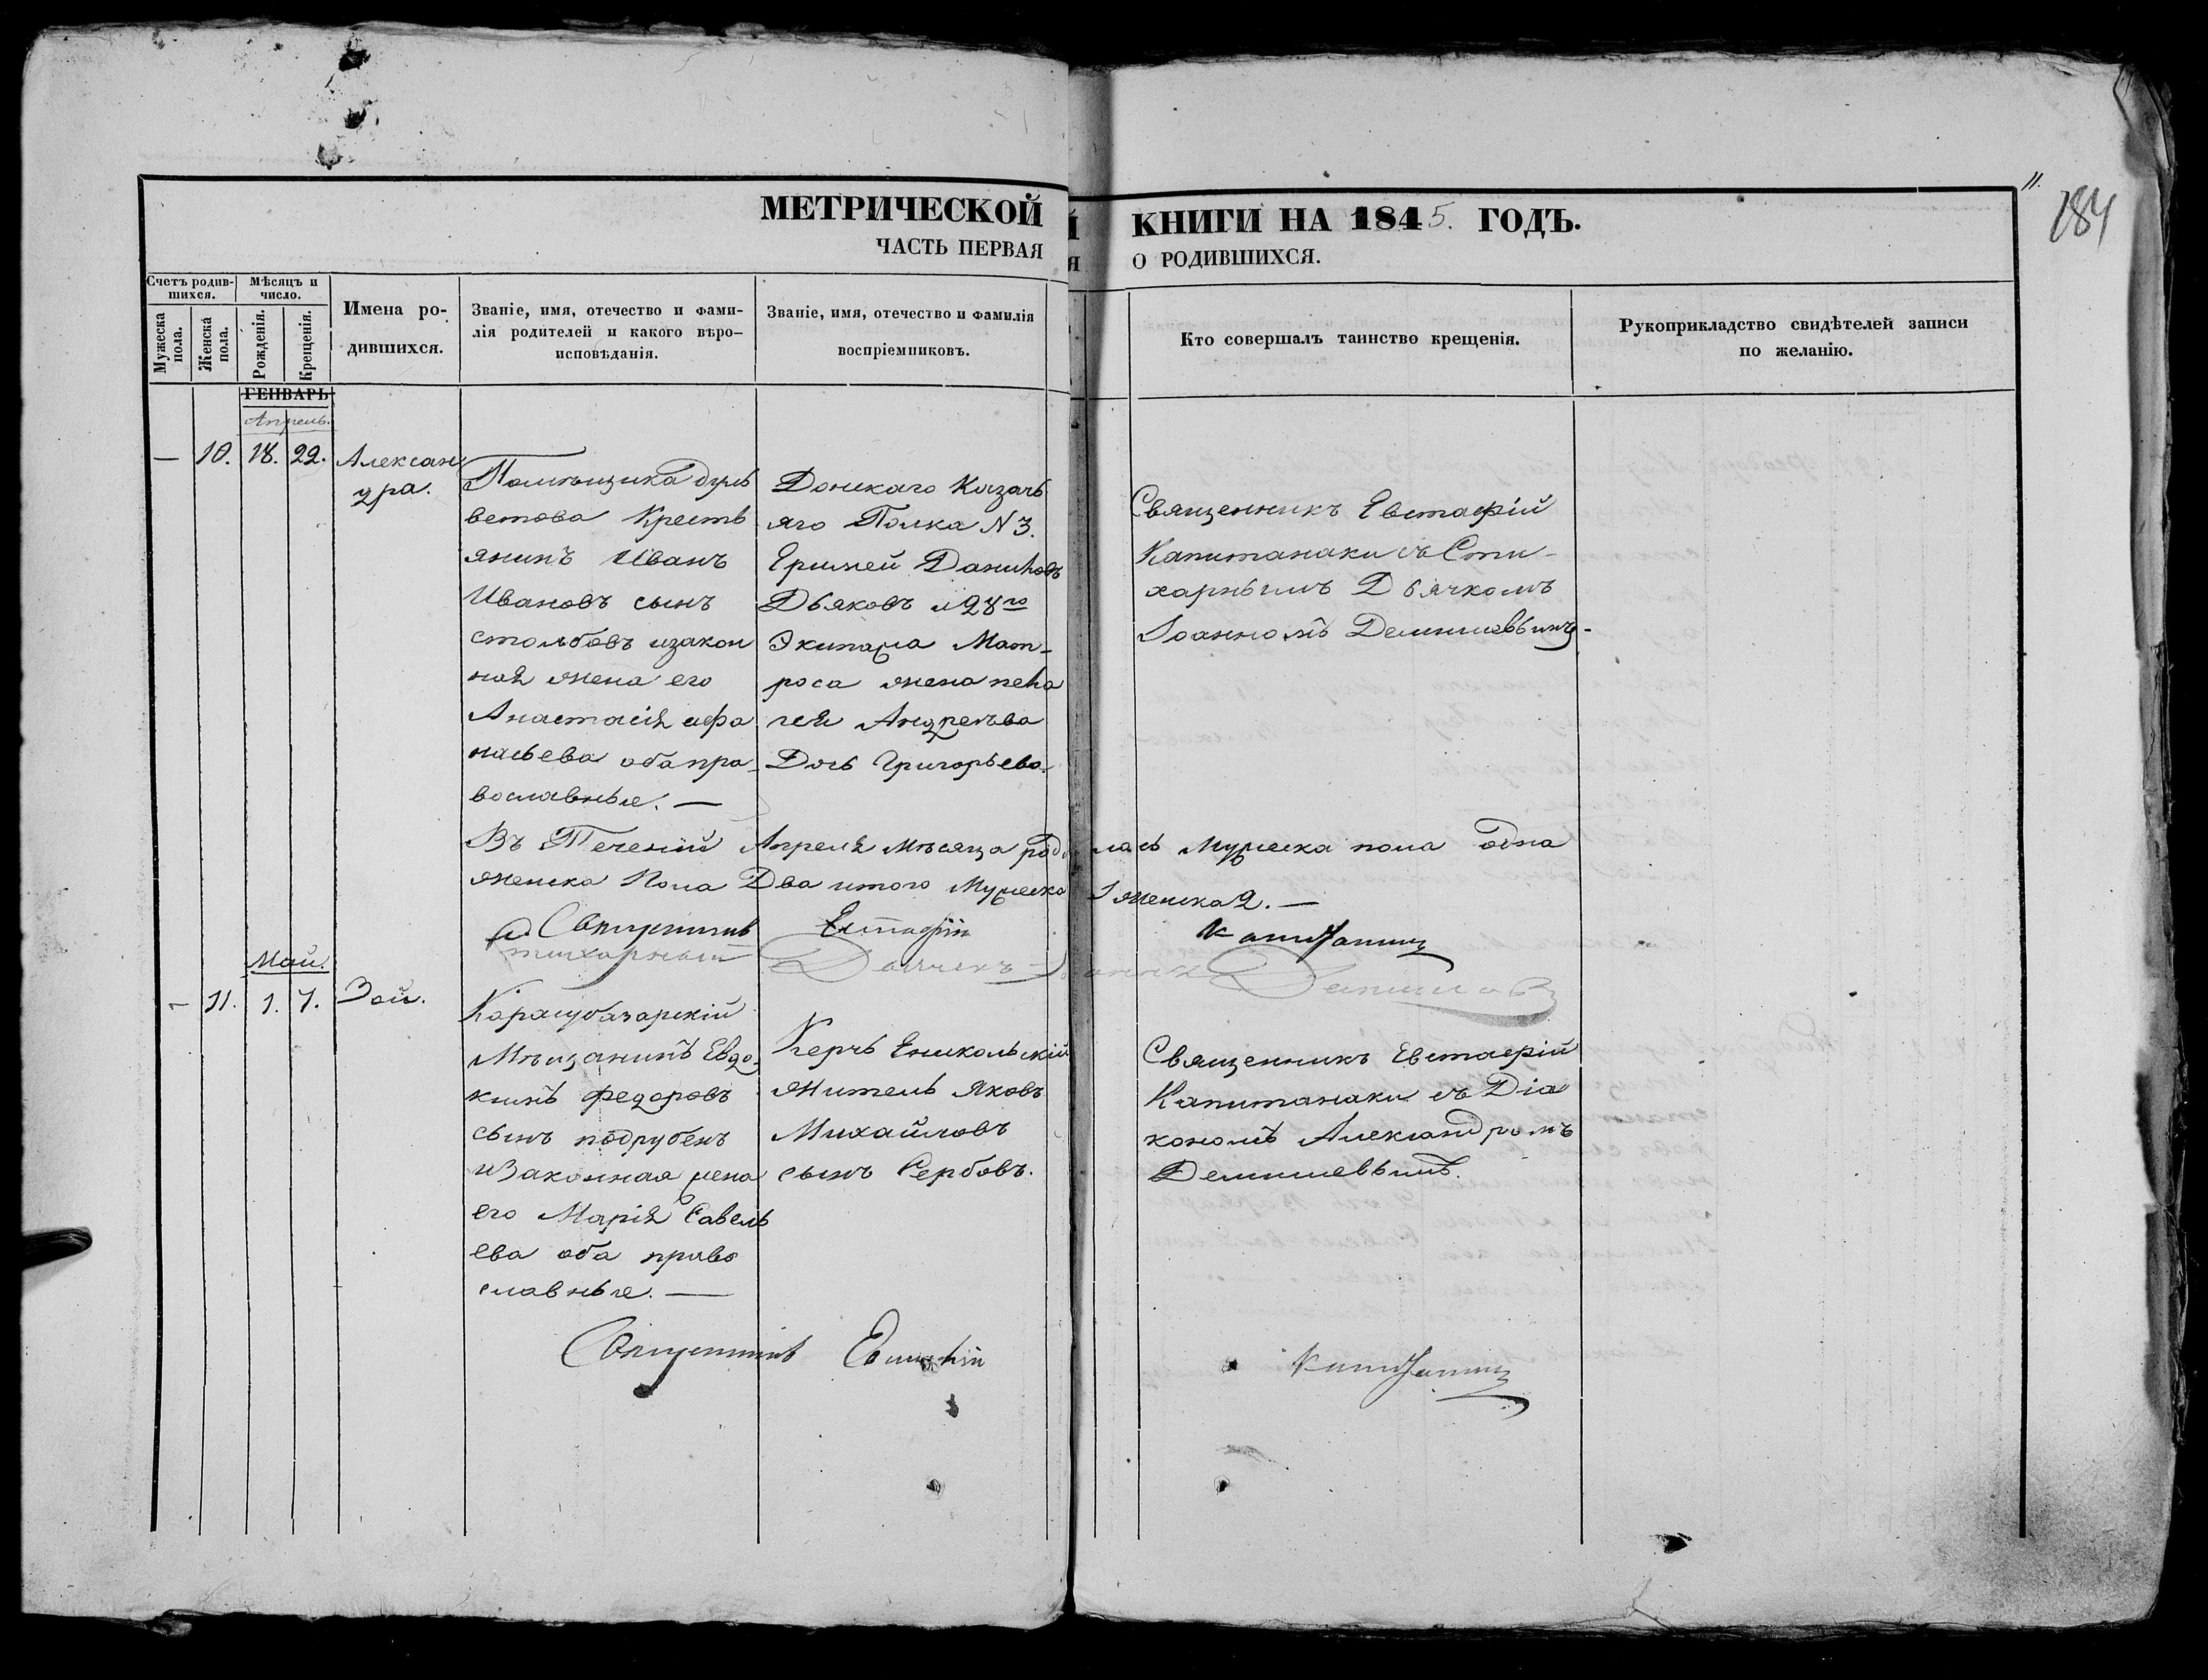 МЕТРИЧЕСКОЙ КНИГИ НА 1845. ГОДЪ.
ЧАСТЬ ПЕРВАЯ О РОДИВШИХСЯ.
11.
184
Счетъ родив-
шихся.
Мужеска пола.
Женска пола.
Мѣсяцъ и
число.
Рожденія.
Крещенія.
Имена ро-
дившихся.
Званіе, имя, отечество и фами-
лія родителей и какого вѣро-
исповѣданія.
Званіе, имя, отечество и фамилія
воспріемниковъ.
Кто совершалъ таинство крещенія.
Рукоприкладство свидѣтелей записи
по желанію.
ГЕНВАРЬ
Апрель.
— 10. 18. 22.
Алексан
дра.
Помѣщика
ветова Кресть
янинъ Иванъ
Ивановъ сынъ
столбовъ изакон
ная жена его
Анастасія афа
насьева оба пра-
вославные. —
Донскаго Казачь
яго Полка N 3.
Еримей
Дьяковъ и 28го
Экипажа Мат-
роса жена пела
гея Андреева
Дочь Григорьева.
Священникъ Евстафій
Капитанаки съ Сти-
харнымъ Дьячкомъ
Іоанномъ
Въ Теченіи Апреля Мѣсяца родилась Мужеска пола одна
женска Пола Два итого Мужеска 1 женска 2. —
Священникъ Евстафій Капитанаки
стихарный Дьячекъ
Май.
— 11. 1. 7.
Зои.
Карасубазарскій
Мѣщанинъ Евдо-
кимъ Федоровъ
сынъ подрубенъ
изаконная жена
его Марія Савель
ева оба право
славные. —
Керчь Еникольскій
Житель Яковъ
Михайловъ
сынъ Сербовъ.
Священникъ Евстафій
Капитанаки съ Діа
кономъ Александромъ
Священникъ Евстафій Капитанаки